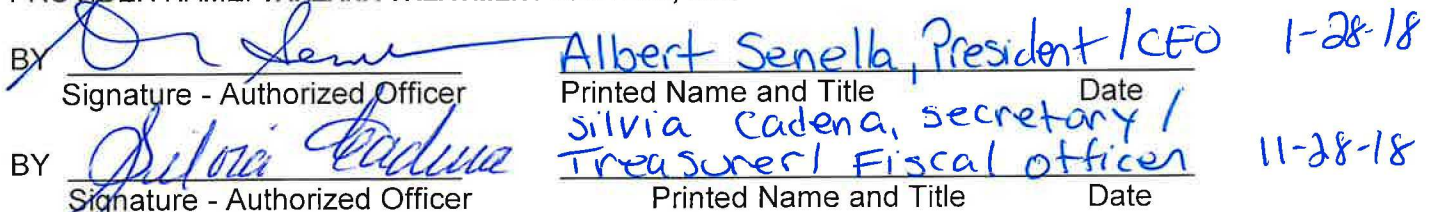 BY Albert Senella, President/CEO 1-28-18
Signature - Authorized Officer Printed Name and Title Date
silvia Cadena, secretary/
BY Silvia Cadena Treasurer/ Fiscal officer 11-28-18
Signature - Authorized Officer Printed Name and Title Date